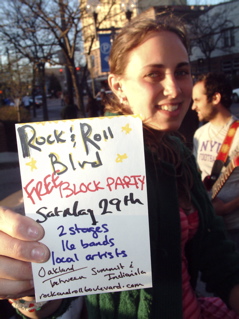 Rock & Roll
Blvd
FREE BLOCK PARTY
Saturday 29th
2 stages
16 bands
local artists
Oakland
between Summit &
Indianola
rockandrollboulevard.com